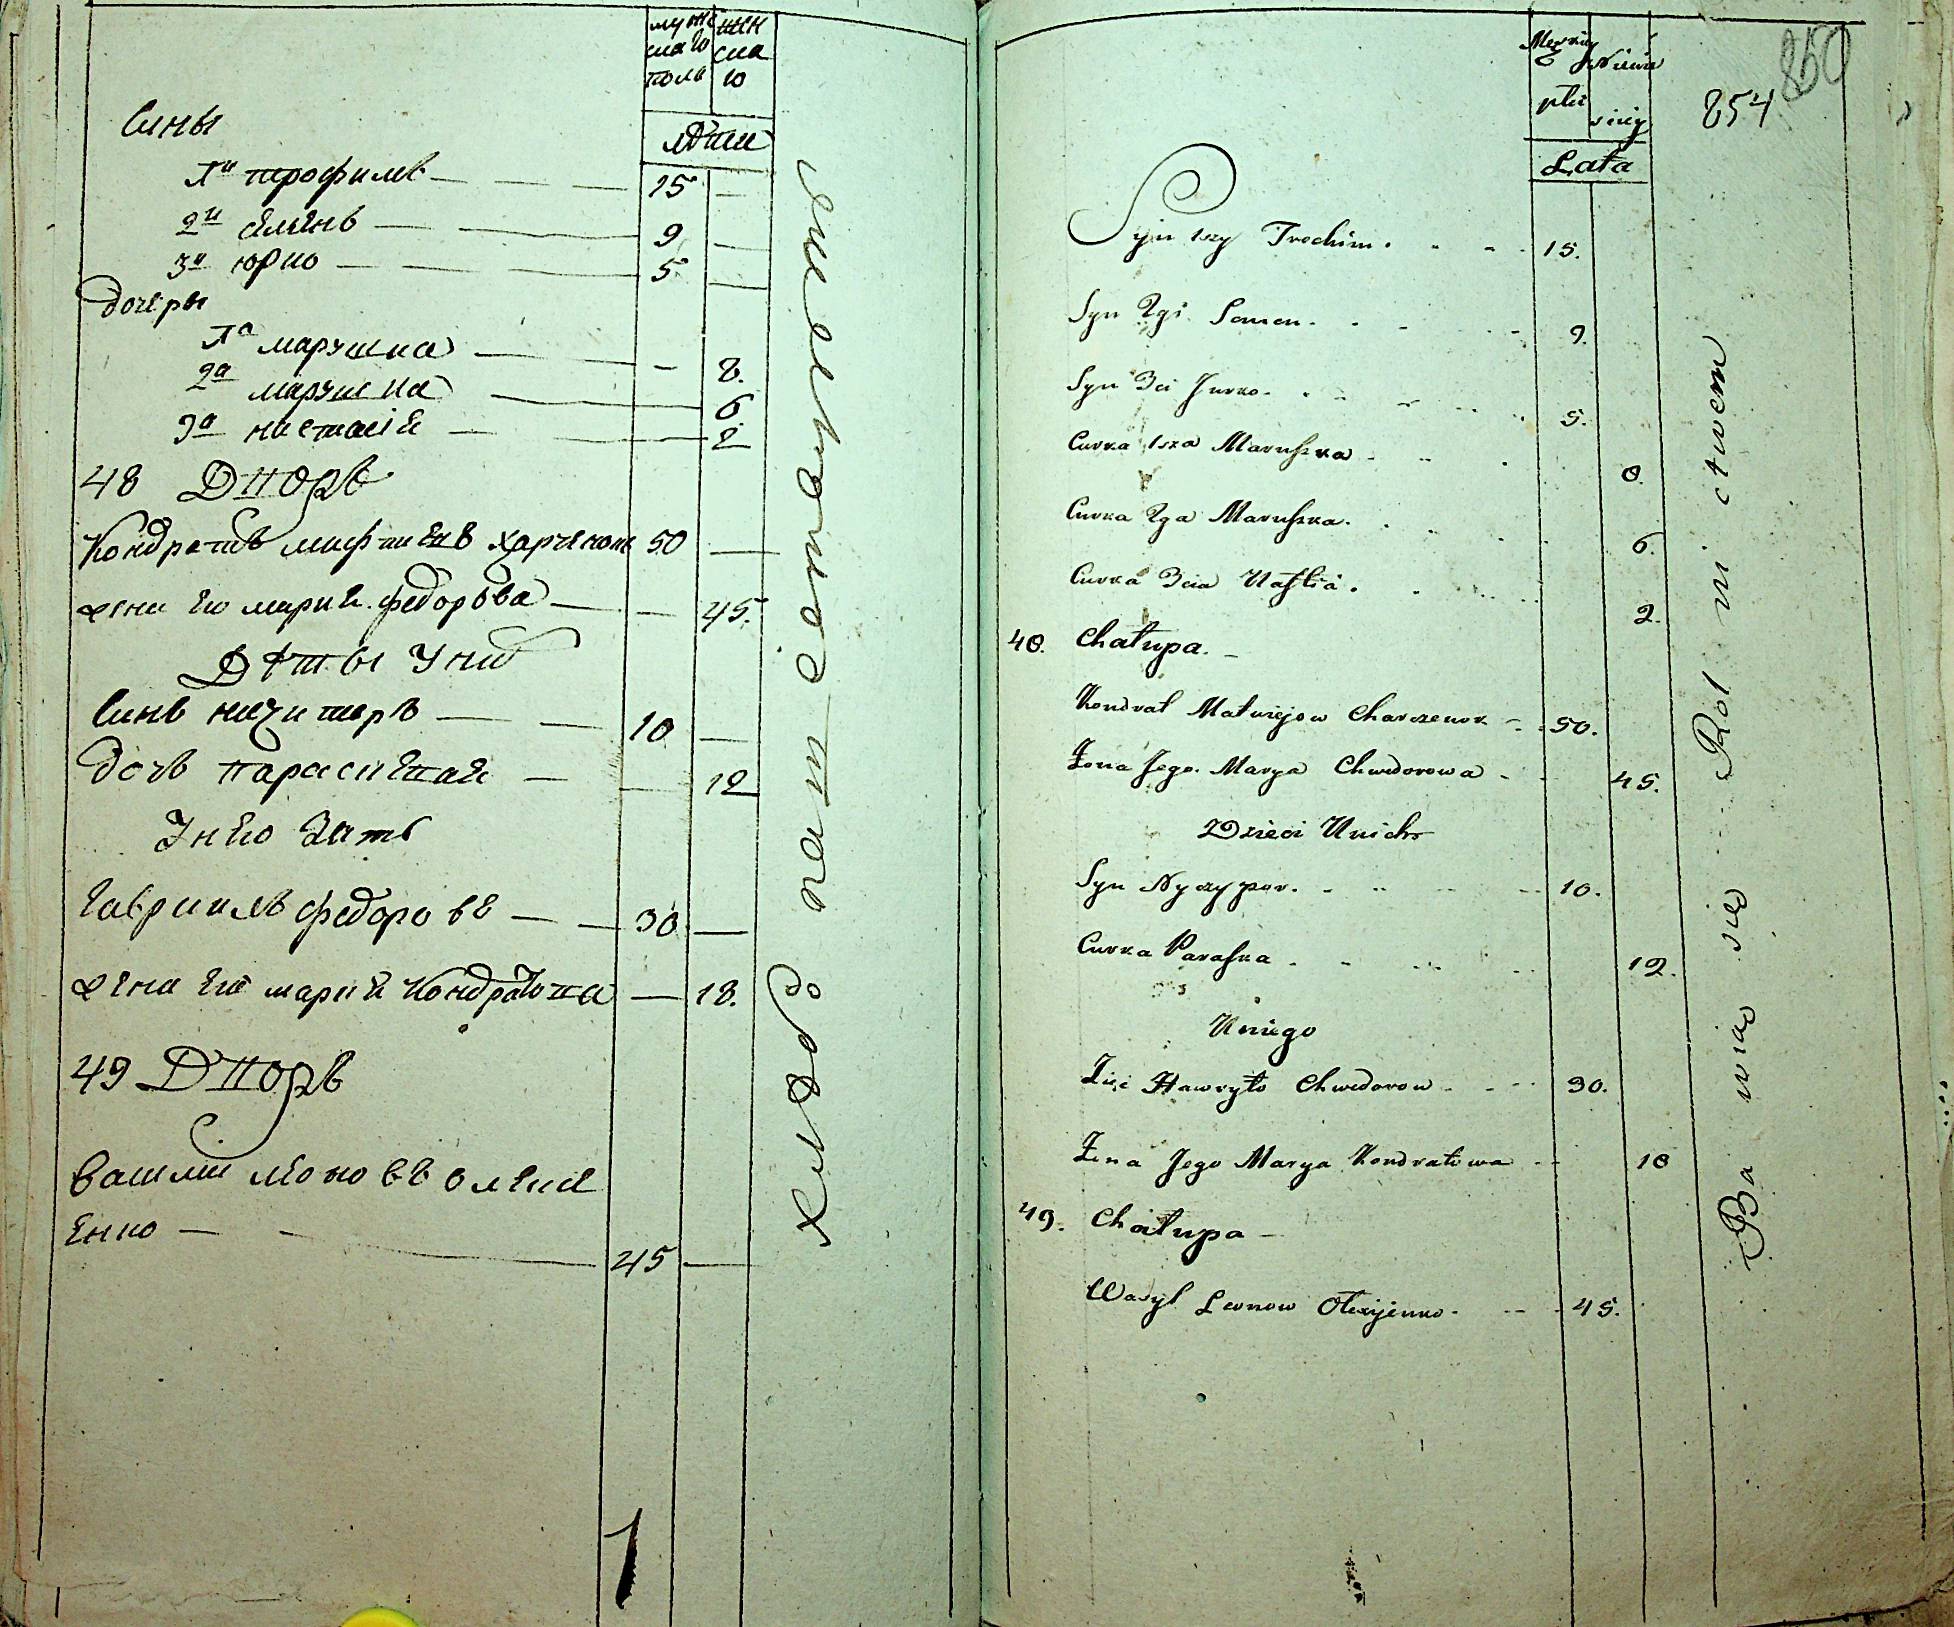 мужескаго пола
женскаго
лѣты
Сины
1й трофимъ — 15 —
2й семенъ — 9 —
3й юрко — 5 —
дочеры
1а марушка — — 8.
2а марушка — 6
3а настасіе — 2
48 Дворъ
Кондратъ матфиевъ харченокъ 50 —
жена его марие. федорова — — 45.
Дѣты у них
Синъ ничипоръ — 10 —
дочъ параскевие — 12
у него зать
гавриилъ федоровъ — 30 —
жена его марие Кондратова — 18.
49 Дворъ
васили леоновъ олексе
енко — 45 —
хлебопашеством
Męzkiej płci
Niewiesciej
Lata
854
850
Syn 1szy Trochim. 15.
Syn 2gi Semen. 9.
Syn 3ci Jurko. 5.
Curka 1sza Maruszka 8.
Curka 2ga Maruszka. 6.
Curka 3cia Nasția. 2.
48. Chałupa.
Kondrat Matwiejow Charczenok 50.
Żona Jego. Marya Chwedorowa 45.
Dzieci U nich
Syn Nyczypor. 10.
Curka Paraska 12.
U niego
Zięć Hawryło Chwedorow 30.
Żona Jego Marya Kondratowa 18
49. Chałupa
Wasyl Leonow Olexijenko. 45.
Bawiąo się Rolnictwem